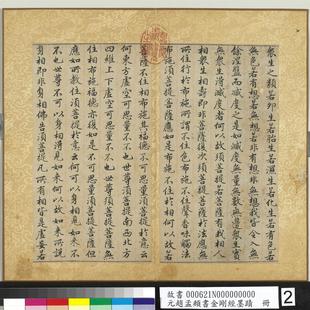 眾生之類若卵生若胎生若濕生若化生若有色若
無色若有想若無想若非有想非無想我皆令入無
餘涅槃而滅度之如是滅度無量無數無邊眾生實
無眾生得滅度者何以故須菩提若菩薩有我相人
相眾生相壽者相即非菩薩復次須菩提菩薩於法應無
所住行於布施所謂不住色布施不住聲香味觸法
布施須菩提菩薩應如是布施不住於相何以故若
菩薩不住相布施其福德不可思量須菩提於意云
何東方虛空可思量不不也世尊須菩提南西北方
四維上下虛空可思量不不也世尊須菩提菩薩無
住相布施福德亦復如是不可思量須菩提菩薩但
應如所教住須菩提於意云何可以身相見如來不
不也世尊不可以身相得見如來何以故如來所說
身相即非身相佛告須菩提凡所有相皆是虛妄若
故書 000621N000000000
元趙孟頫書金剛經墨蹟 冊
2